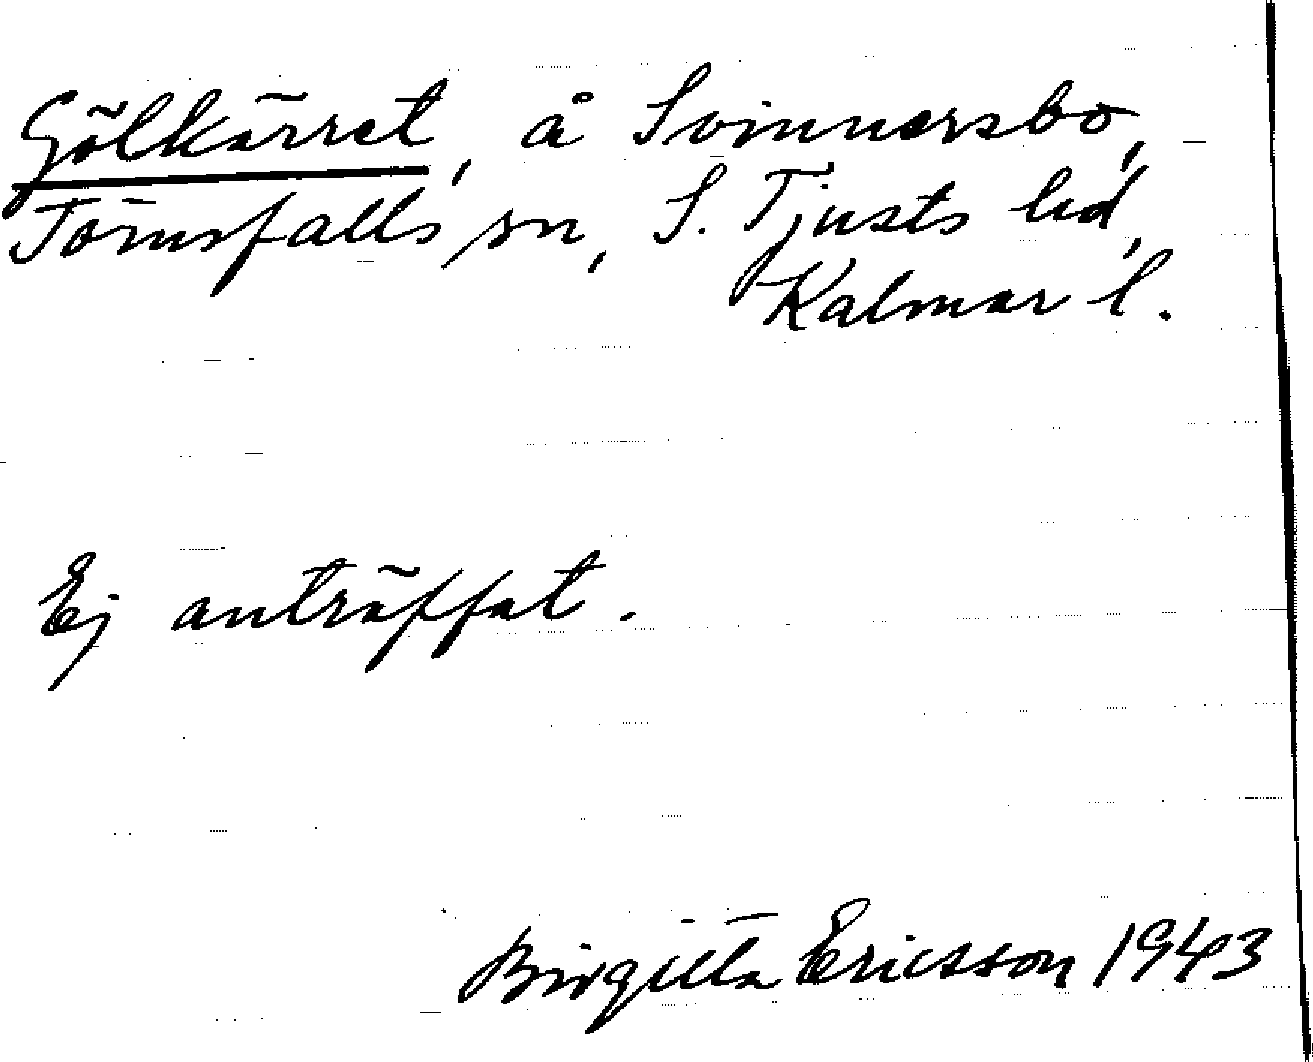 Gölkärret, å Svinnersbo,
Törnsfalls sn, S. Tjusts hd,
Kalmar l.
Ej anträffat.
Birgitta Ericsson 1943